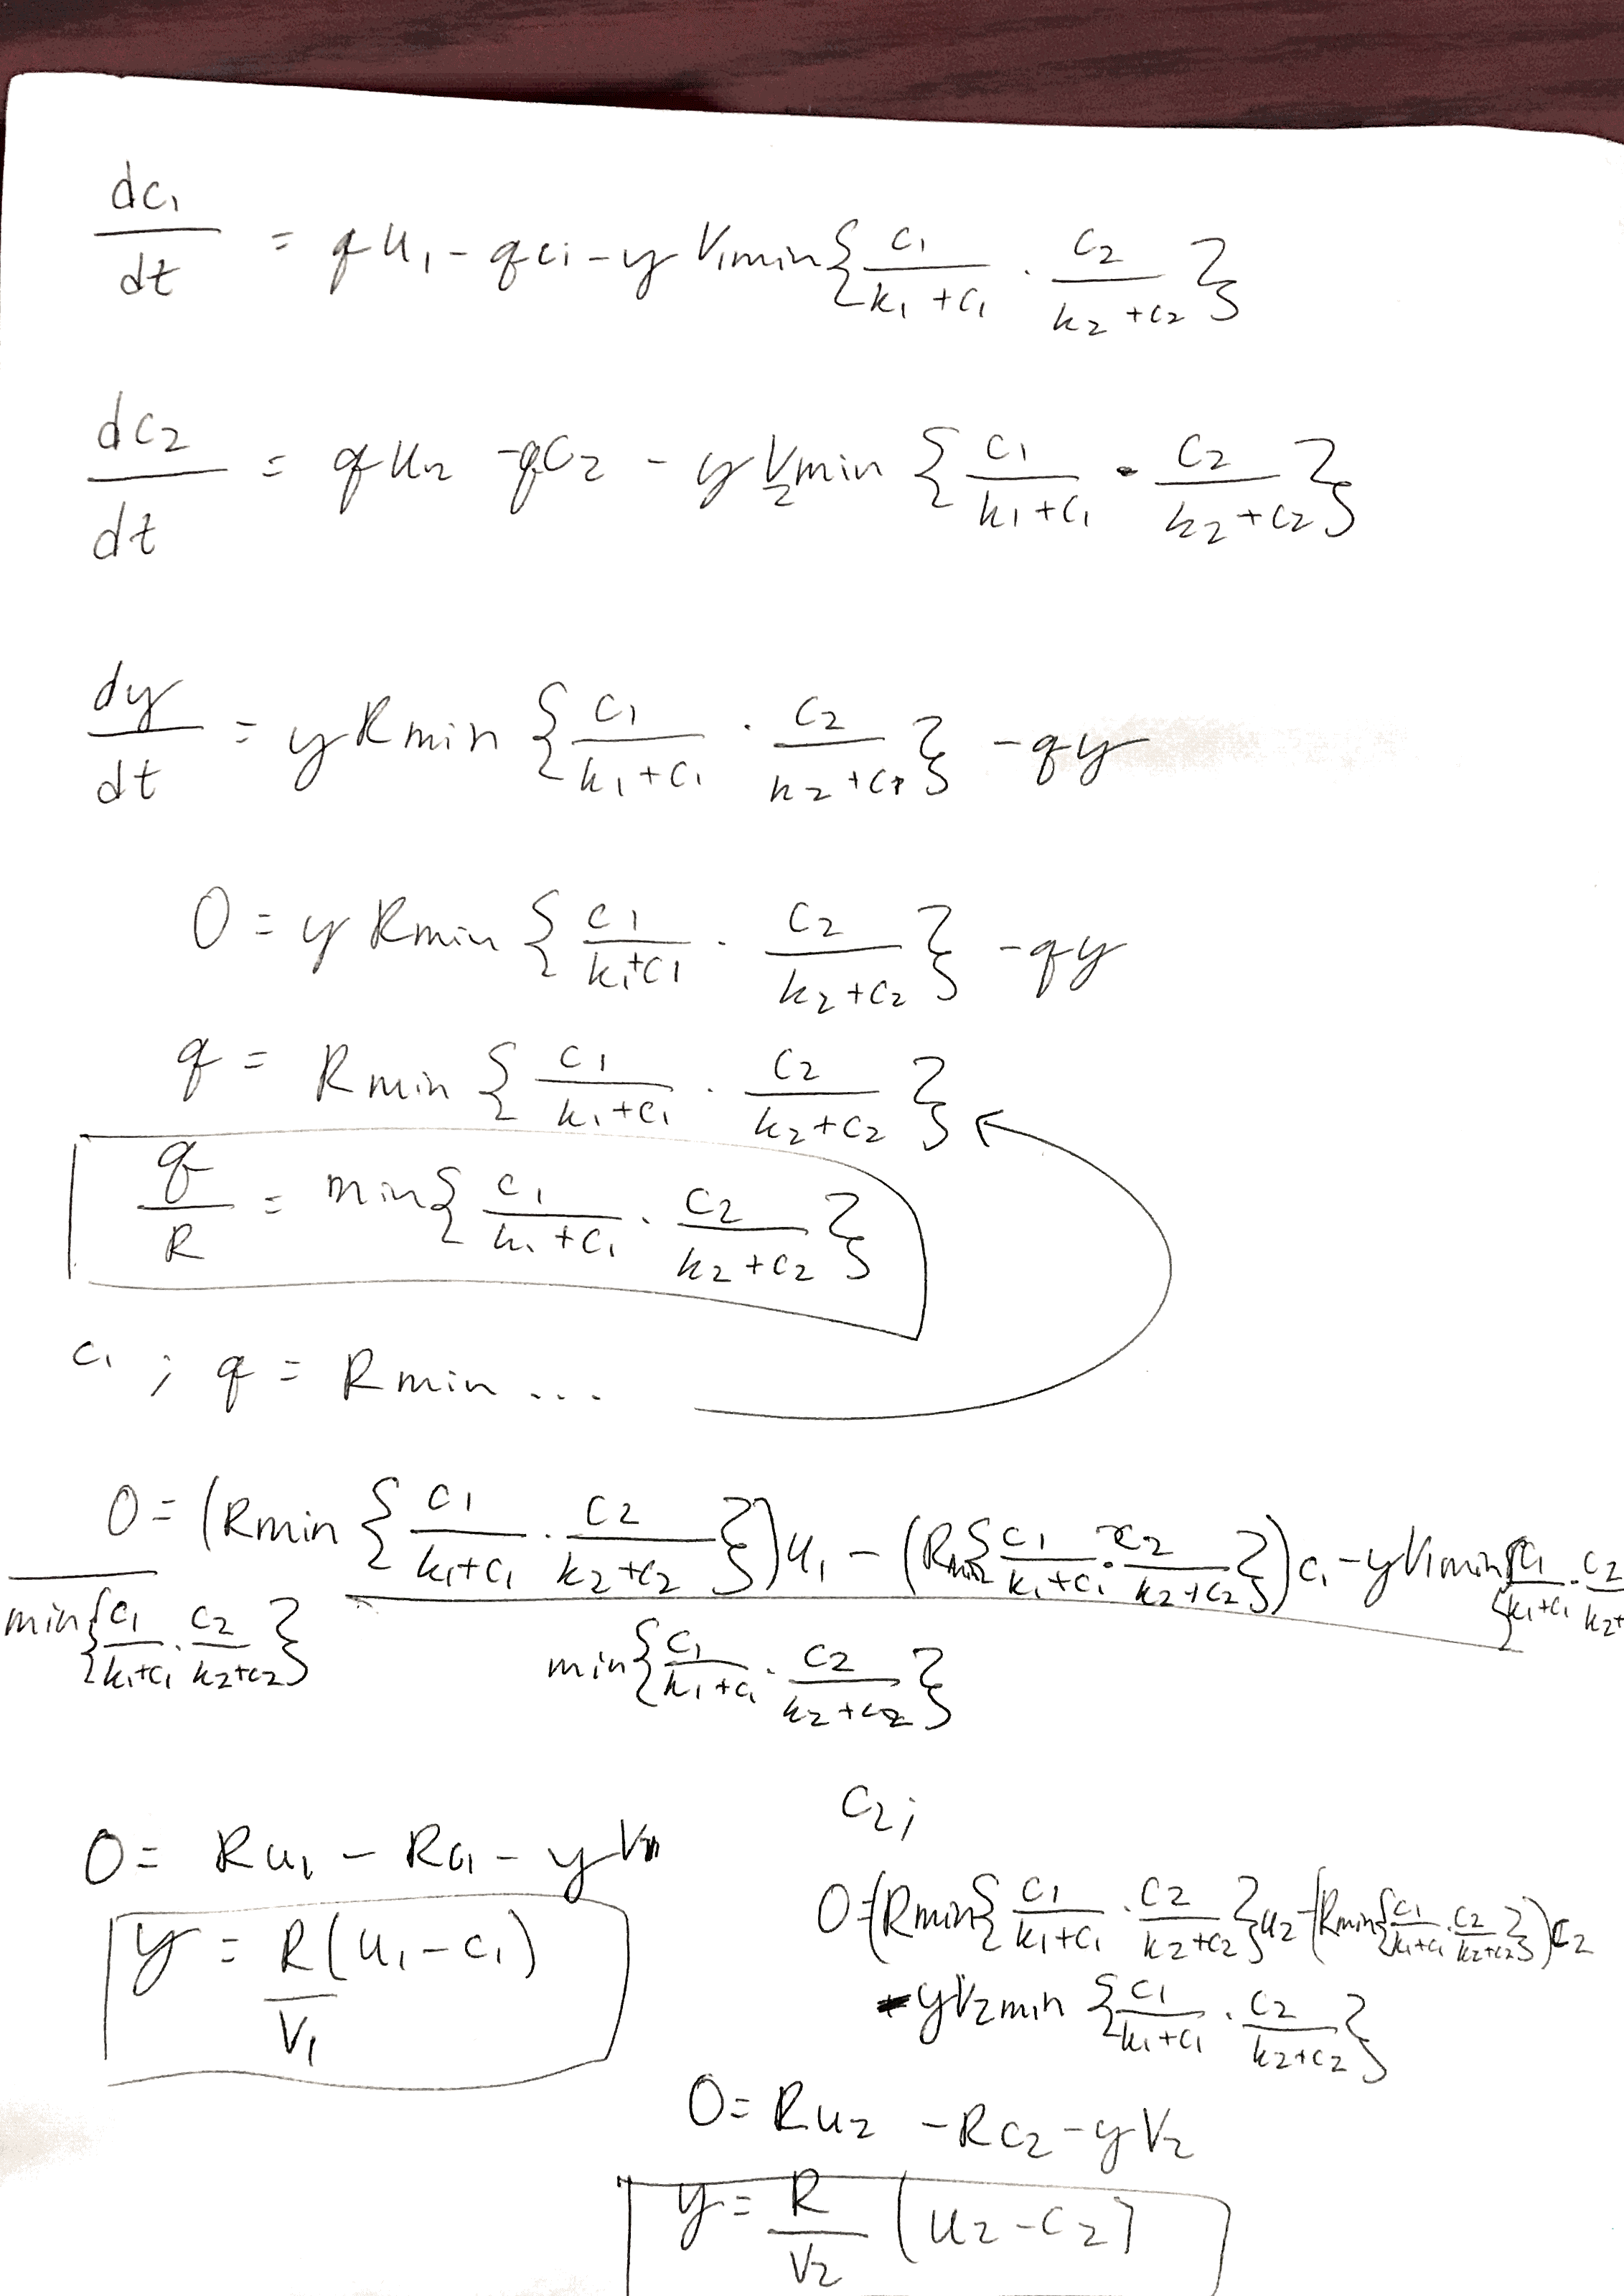 dc₁/dt = qu₁ - qc₁ - y V₁min{c₁/(k₁+c₁) · c₂/(k₂+c₂)}
dc₂/dt = qu₂ - qc₂ - y V₂min {c₁/(k₁+c₁) · c₂/(k₂+c₂)}
dy/dt = y Rmin {c₁/(k₁+c₁) · c₂/(k₂+c₂)} - qy
0 = y Rmin {c₁/(k₁+c₁) · c₂/(k₂+c₂)} - qy
q = Rmin {c₁/(k₁+c₁) · c₂/(k₂+c₂)}
q/R = min{c₁/(k₁+c₁) · c₂/(k₂+c₂)}
c₁ ; q = Rmin ...
0 = (Rmin {c₁/(k₁+c₁) · c₂/(k₂+c₂)})u₁ - (Rmin{c₁/(k₁+c₁) · c₂/(k₂+c₂)})c₁ - yV₁min{c₁/(k₁+c₁) · c₂/k₂+
min{c₁/(k₁+c₁) · c₂/(k₂+c₂)} min{c₁/(k₁+c₁) · c₂/(k₂+c₂)}
0 = Ru₁ - Rc₁ - yV₁
y = R/V₁ (u₁ - c₁)
c₂ ;
0 = (Rmin{c₁/(k₁+c₁) · c₂/(k₂+c₂)}u₂ - (Rmin{c₁/(k₁+c₁) · c₂/(k₂+c₂)})c₂
- yV₂min {c₁/(k₁+c₁) · c₂/(k₂+c₂)}
0 = Ru₂ - Rc₂ - yV₂
y = R/V₂ (u₂ - c₂)